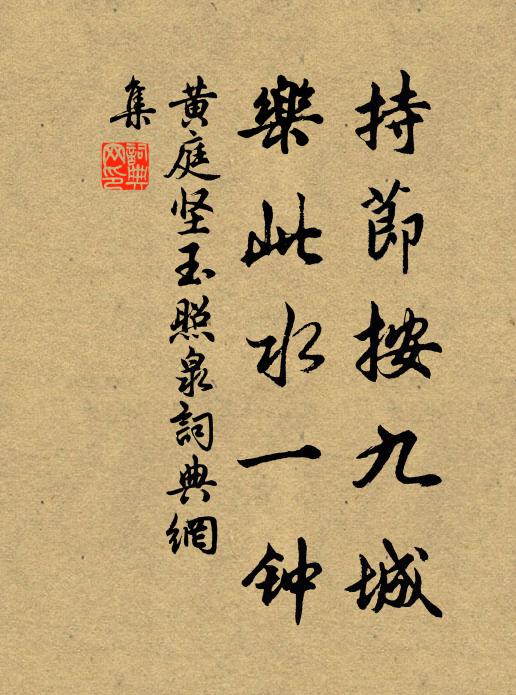 持節按九城
樂此水一钟
黄庭坚玉照泉詞典網
集
詞典網印